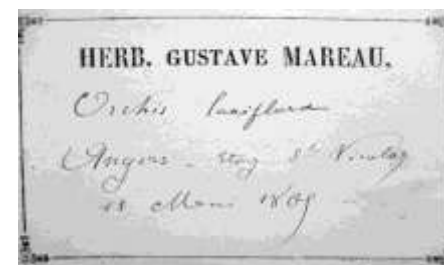 HERB. GUSTAVE MAREAU.
Orchis laxiflora
Angers. Etang St Nicolas
18